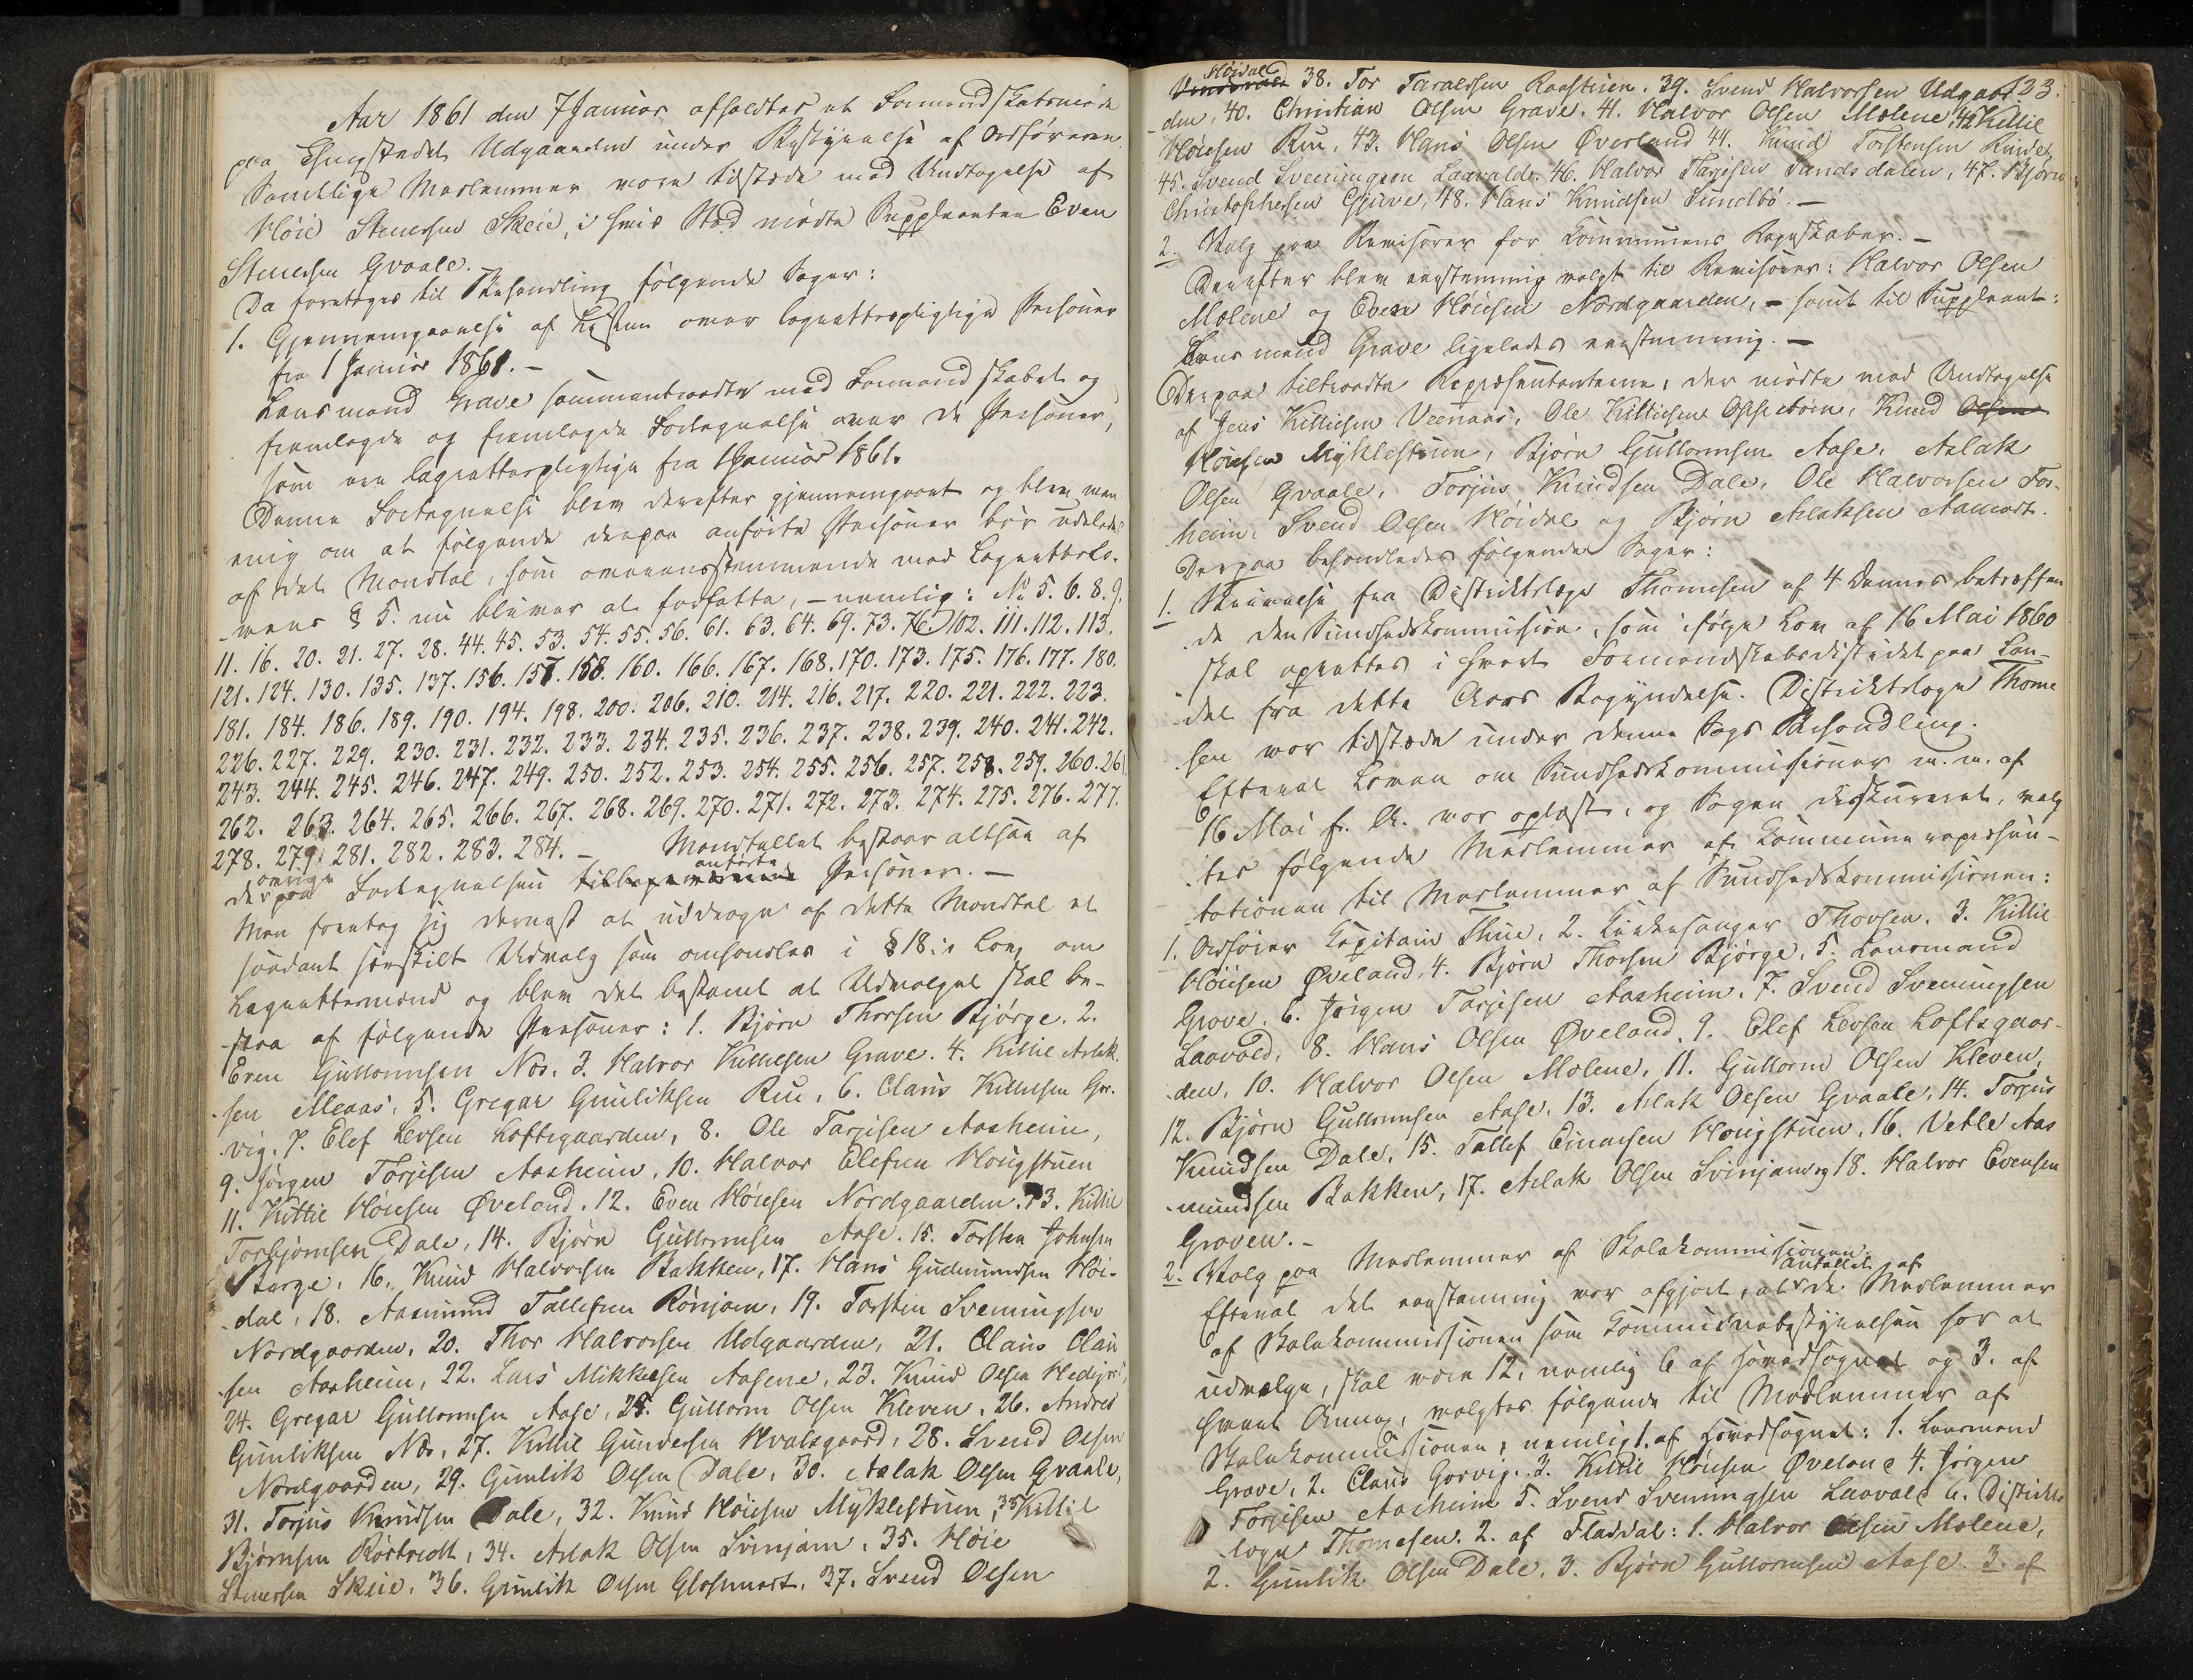 Aar 1861 den 7 Januar afholdtes et Formandskabsmøde
paa Thingstedet Udgaarden under Bestyrelse af Ordføreren
Samtlige Medlemmer vare tilstede med Undtagelse af
Høie Stenersen Skeie, i hvis Sted mødte Suppleanten Even
Stenersen Gvaale.
Da foretoges til Behandling følgende Sager:
1. Gjennemgaaelse af Listen over lagrettespligtige Personer
fra 1 Januar 1861.–
Lensmand Grave sammentraadte med Formandskabet og
fremlagde og fremlagde Fortegnelse over de Personer,
som ere lagrettespligtige fra 1 Januar 1861.
Denne Fortegnelse blev derefter gjennemgaaet og blev man
enig om at følgende derpaa anførte Personer bør udelades
af det Mandtal, som overensstemmende med Lagrettelo-
-vens § 5. nu bliver at forfatte, – nemlig: No 5. 6. 8. 9.
11. 16. 20. 21. 27. 28. 44. 45. 53. 54. 55. 56. 61. 63. 64. 69. 73. 76. 102. 111. 112. 113.
121. 124. 130. 135. 137. 156. 157. 158. 160. 166. 167. 168. 170. 173. 175. 176. 177. 180.
181. 184. 186. 189. 190. 194. 198. 200. 206. 210. 214. 216. 217. 220. 221. 222. 223.
226. 227. 229. 230. 231. 232. 233. 234. 235. 236. 237. 238. 239. 240. 241. 242.
243. 244. 245. 246. 247. 249. 250. 252. 253. 254. 255. 256. 257. 258. 259. 260. 261.
262. 263. 264. 265. 266. 267. 268. 269. 270. 271. 272. 273. 274. 275. 276. 277.
278. 279. 281. 282. 283. 284. – Mandtallet bestaar altsaa af
de øvrige paa Fortegnelsen anførte Personer. –
Man foretog sig dernæst at uddrage af dette Mandtal et
saadant særskilt Udvalg som omhandles i § 18 i Lov om
Lagrettemænd og blev det bestemt at Udvalget skal be-
-staa af følgende Personer: 1. Bjørn Thorsen Bjørge. 2.
Even Guttormsen Nos. 3. Halvor Kittilsen Grave. 4. Kittil Aslak-
-sen Meaas, 5. Gregar Gunliksen Rue, 6. Claus Kittilsen Gor-
-vig. 7. Elef Levsen Loftsgaarden, 8. Ole Tarjeisen Aasheim,
9. Jørgen Torjesen Aasheim, 10. Halvor Elefsen Haugstuen
11. Kittil Høiesen Øveland. 12. Even Høiesen Nordgaarden. 13. Kittil
Torbjørnsen Dale, 14. Bjørn Guttormsen Aase. 15. Torsten Johnsen
Berge, 16. Knud Halvorsen Bakken, 17. Hans Gudmundsen Høi-
-dal, 18. Aasmund Tallefsen Rønjom, 19. Torsten Sveningsen
Nordgaarden, 20. Thor Halvorsen Udgaarden, 21. Claus Clau-
-sen Aasheim, 22. Lars Mikkelsen Aasene, 23. Knud Olsen
24. Gregar Guttormsen Aase, 25. Guttorm Olsen Kleven, 26. Andres
Gunliksen Nos, 27. Kittil Gundersen Hvalsgaard, 28. Svend Olsen
Nordgaarden, 29. Gunlik Olsen Dale, 30. Aslak Olsen Gvaale,
31. Torjus Knudsen Dale, 32. Knud Høiesen Myklestuen, 33 Kittil
Bjørnsen Rørtvedt, 34. Aslak Olsen Svinjam, 35. Høie
Stenersen Skeie. 36. Gunlik Olsen Glosimodt, 37. Svend Olsen
Høidal 38. Tor Taraldsen Raastuen. 39. Svend Halvorsen Udgaar 123.
-den, 40. Christian Olsen Grave. 41. Halvor Olsen Molene, 42 Kittil
Høiesen Rue, 43. Hans Olsen Øverland 44. Knud Torstensen
45. Svend Sveningsen Laavalds. 46. Halvor Tarjeisen Sandsdalen, 47. Bjørn
Christophersen Gjuve, 48. Hans Knudsen Sundbø. –
2. Valg paa Revisorer for Kommunens Regnskaber. –
Derefter blev eenstemmig valgt til Revisorer: Halvor Olsen
Molene og Even Høiesen Nordgaarden, – samt til Suppleant:
Lensmand Grave ligeledes eenstemmig. –
Derpaa tiltraadte Repræsentanterne, der mødte med Undtagelse
af Jens Kittilsen Veenaas, Ole Kittilsen Opsetvein, Knud Olsen
Høiesen Myklestuen, Bjørn Guttormsen Aase, Aslak
Olsen Gvaale, Torjus Knudsen Dale, Ole Halvorsen For-
-heim, Svend Olsen Høidal og Bjørn Aslaksen Aamodt.
Derpaa behandledes følgende Sager:
1. Skrivelse fra Distriktslæge Thomesen af 4 dennes betræffen
-de den Sundhedskommission, som ifølge Lov af 16 Mai 1860
skal oprettes i hvert Formandskabsdistrikt paa Lan-
-det fra dette Aars Begyndelse. Distriktslæge Thome
-sen var tilstede under denne Sags Behandling.
Efterat Loven om Sundhedskommissioner m. m. af
16 Mai f. A. var oplæst, og Sagen diskuteret, valg
-tes følgende Medlemmer af Kommunerepræsen-
-tationen til Medlemmer af Sundhedskommissionen:
1. Ordfører Kapitain Thue, 2. Kirkesanger Thorsen. 3. Kittil
Høiesen Øveland, 4. Bjørn Thorsen Bjørge, 5. Lensmand
Grave. 6. Jørgen Torjesen Aasheim. 7. Svend Sveningsen
Laavald, 8. Hans Olsen Øveland. 9. Elef Levsen Loftsgaar-
-den, 10. Halvor Olsen Molene, 11. Guttorm Olsen Kleven,
12. Bjørn Guttormsen Aase, 13. Aslak Olsen Gvaale, 14. Torjus
Knudsen Dale, 15. Tallef Einarsen Haugstuen, 16. Vetle Aas
-mundsen Bakken, 17. Aslak Olsen Svinjam og 18. Halvor Evensen
Graven. –
2. Valg paa Medlemmer af Skolekommissionen.
Efterat det eenstemmig var afgjort, at Antallet af de Medlemmer
af Skolekommissionen som Kommunebestyrelsen har at
udvælge, skal være 12, nemlig 6 af Hovedsognet og 3. af
hvert Annex, valgtes følgende til Medlemmer af
Skolekommissionen, nemlig 1. af Hovedsognet: 1. Lensmand
Grave, 2. Claus Gorvig. 3. Kittil Høiesen Øveland 4. Jørgen
Torjesen Aasheim 5. Svend Sveningsen Laavald 6. Distrikts
læge Thomesen. 2. af Flatdal: 1. Halvor Olsen Molene,
2. Gunlik Olsen Dale. 3. Bjørn Guttormsen Aase 3. af